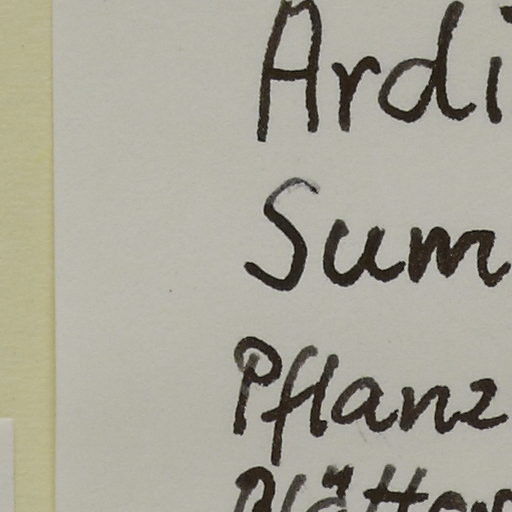 Ardi
Sum
Pflanz
Blätter